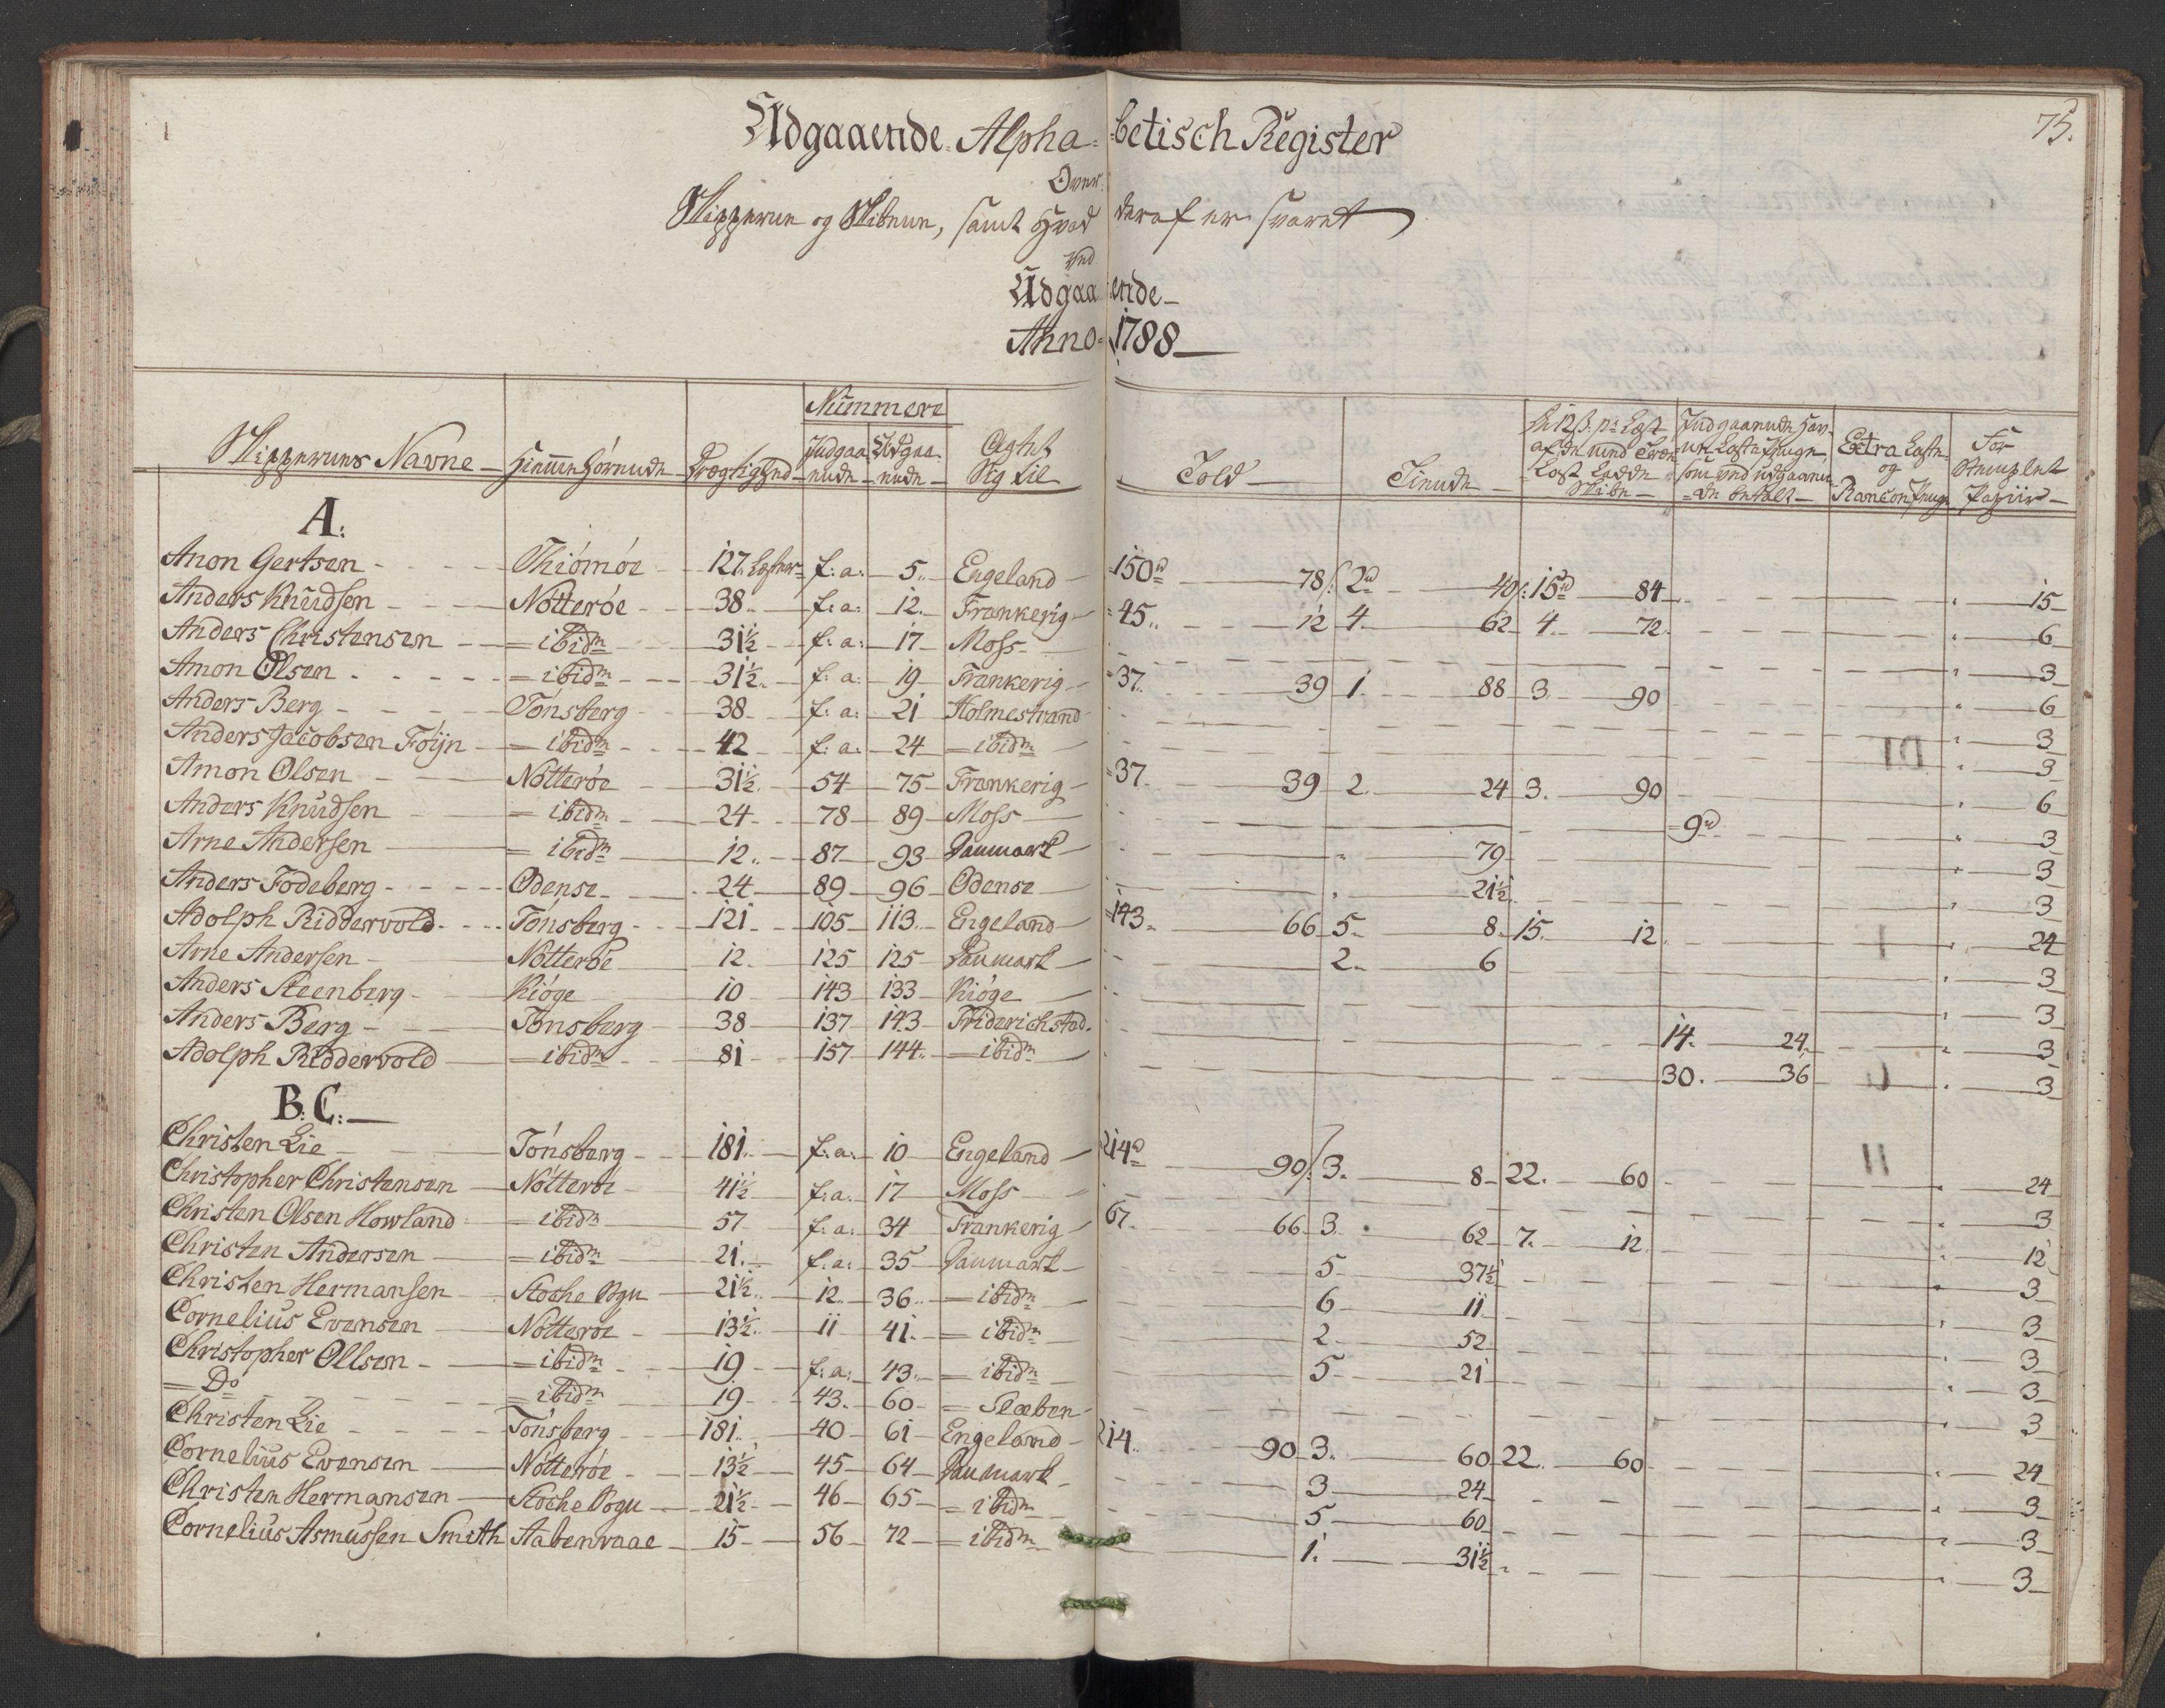 75.
Udgaaende Alpha=betisch Register
Over
Skipperne og Skibene, samt hvad deraf er svaret
ved
Udgaaende
Anno 1788
Skippernes Navne Hiemmehørende Drægtighed Nummere Told Tiende Extra Laste For
Indgaa= Udgaa= Agtet og Stemplet
nude nude Sig til Skibe =de betalt Rancon Penge Papiir
A:
Anon Gertsen Thiömöe 127 Læster f: a: 5 Engeland 150 78 2 40 15 84 15
Anders Knudsen Nötteröe 38 f: a: 12 Frankerig 45 12 4 62 4 72 6
Anders Christensen = ibidm 31½ f: a: 17 Moss 3
Amon Olsen = ibidm 31½ f: a: 19 Frankerig 37 39 1 88 3 90 6
Anders Berg Tönsberg 38 f: a: 21 Holmestrand 3
Anders Jacobsen Föijn = ibidm 42 f: a: 24 = ibidm 3
Amon Olsen Nötteröe 31½ 54 75 Frankerig 37 39 2 24 3 90 6
Anders Knudsen = ibidm 24 78 89 Moss 9 3
Arne Andersen = ibidm 12 87 93 Danmark 79 3
Anders Fodeberg Odense 24 89 96 Odense 21½ 3
Adolph Riddervold Tönsberg 121 105 113 Engeland 143 66 5 8 15 12 24
Arne Andersen Nötteröe 12 125 125 Danmark 2 6 3
Anders Steenberg Kiöge 10 143 133 Kiöge 3
Anders Berg Tönsberg 38 137 143 Friderichstad 14 24 3
Adolph Riddervold = ibidm 81 157 144 = ibidm 30 36 3
B: C:
Christen Lie Tönsberg 181 f: a: 10 Engeland 214 90 3 8 22 60 24
Christopher Christensen Nötteröe 41½ f: a: 17 Moss 3
Christen Olsen Howland = ibidm 57 f: a: 34 Frankerig 67 66 3 62 7 12 12
Christen Andersen = ibidm 21 f: a: 35 Danmark 5 37½ 3
Christen Hermansen Stoche Sogn 21½ 12 36 = ibidm 6 11 3
Cornelius Evensen Nötteröe 13½ 11 41 = ibidm 2 52 3
Christopher Ollsen = ibidm 19 f: a: 43 = ibidm 5 21 3
= Do = ibidm 19 43 60 = Slæben 3
Christen Lie Tönsberg 181 40 61 Engeland 214 90 3 60 22 60 24
Cornelius Evensen Nötteröe 13½ 45 64 Danmark 3 24 3
Christen Hermansen Stoche Sogn 21½ 46 65 = ibidm 5 60 3
Cornelius Asmussen Smith Aabenraae 15 56 72 = ibidm 1 31½ 3